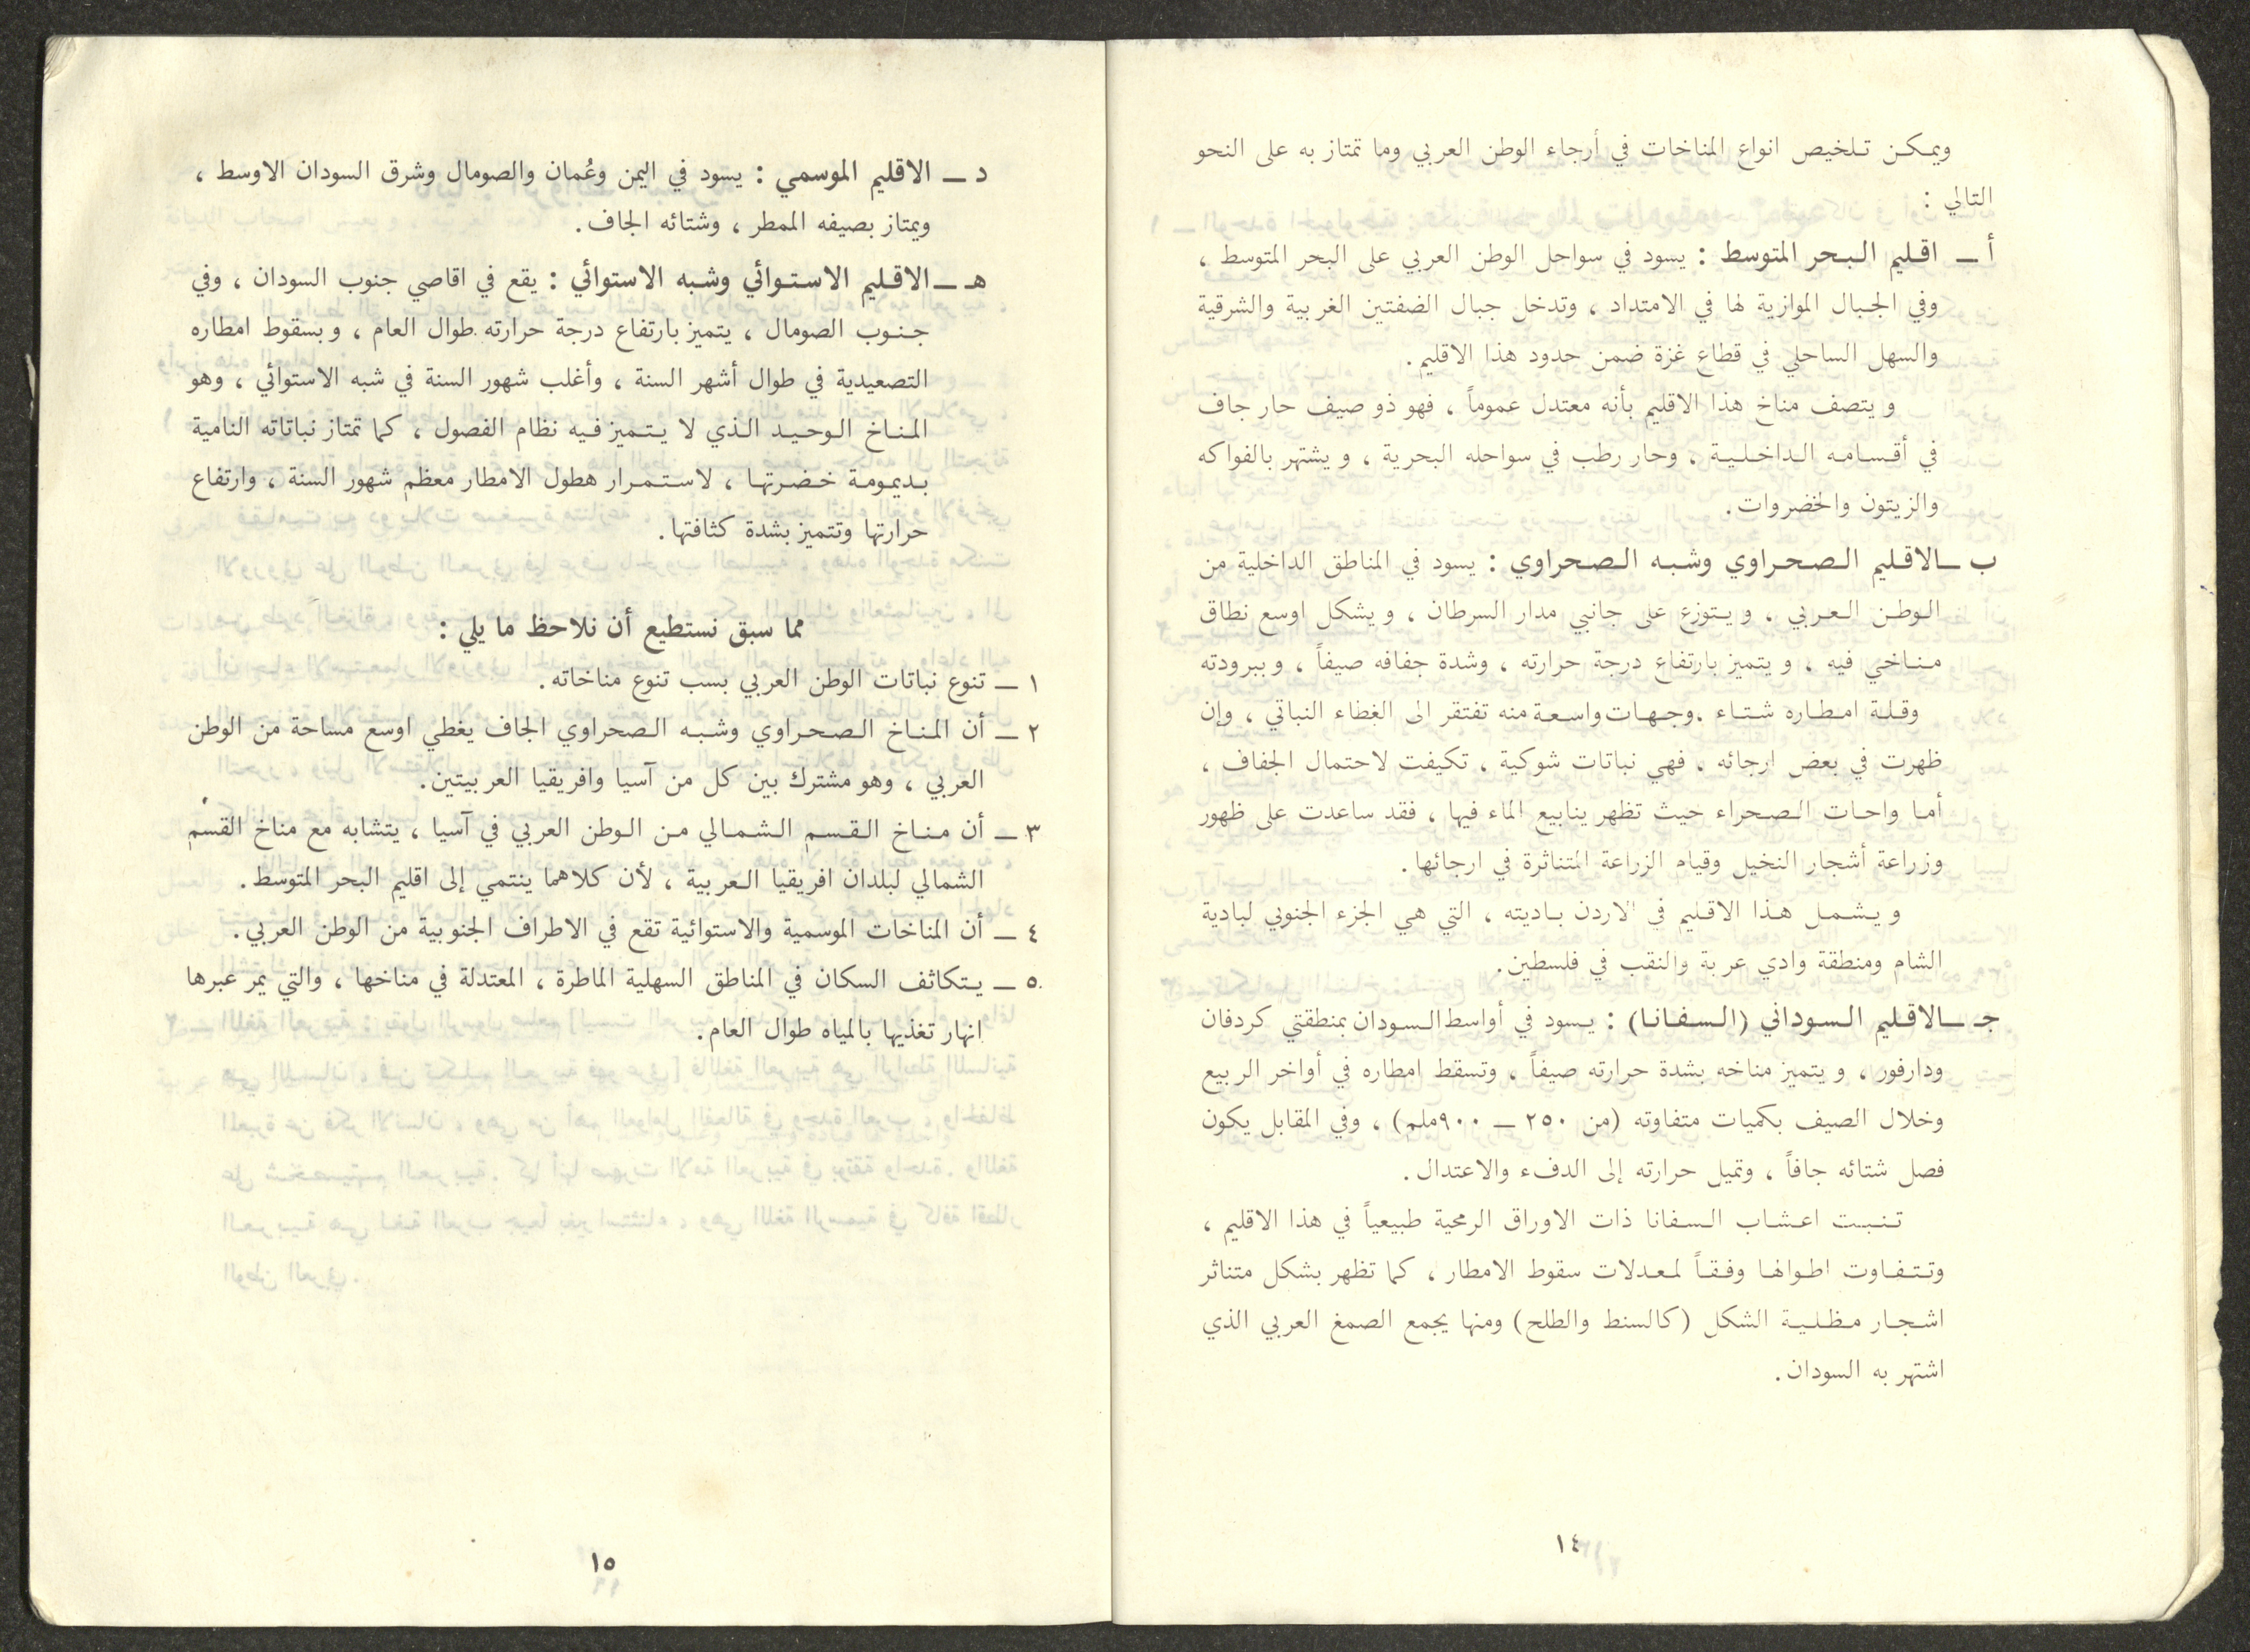 ويمكن تلخيص انواع المناخات في أرجاء الوطن العربي وما تمتاز به على النحو
التالي :
أ ـ اقليم البحر المتوسط : يسود في سواحل الوطن العربي على البحر المتوسط ،
وفي الجبال الموازية لها في الامتداد ، وتدخل جبال الضفتين الغربية والشرقية
والسهل الساحلي في قطاع غزة ضمن حدود هذا الاقليم.
ويتصف مناخ هذا الاقليم بأنه معتدل عموماً ، فهو ذو صيف حار جاف
في أقسامه الداخلية ، وحار رطب في سواحله البحرية ، ويشتهر بالفواكه
والزيتون والخضروات.
ب ـ الاقليم الصحراوي وشبه الصحراوي : يسود في المناطق الداخلية من
الوطن العربي ، ويتوزع على جانبي مدار السرطان ، ويشكل اوسع نطاق
مناخي فيه ، ويتميز بارتفاع درجة حرارته ، وشدة جفافه صيفاً ، وببرودته
وقلة امطاره شتاء ، وجهات واسعة منه تفتقر الى الغطاء النباتي ، وإن
ظهرت في بعض ارجائه ، فهي نباتات شوكية ، تكيفت لاحتمال الجفاف ،
أما واحات الصحراء حيث تظهر ينابيع الماء فيها ، فقد ساعدت على ظهور
وزراعة أشجار النخيل وقيام الزراعة المتناثرة في ارجائها.
ويشمل هذا الاقليم في الاردن باديته ، التي هي الجزء الجنوبي لبادية
الشام ومنطقة وادي عربة والنقب في فلسطين.
جـ ـ الاقليم السوداني (السفانا) : يسود في أواسط السودان بمنطقتي كردفان
ودارفور ، ويتميز مناخه بشدة حرارته صيفاً ، وتسقط امطاره في أواخر الربيع
وخلال الصيف بكميات متفاوته (من ٢٥٠ ـ ٩٠٠ملم) ، وفي المقابل يكون
فصل شتائه جافاً ، وتميل حرارته إلى الدفء والاعتدال.
تنبت اعشاب السفانا ذات الاوراق الرمحية طبيعياً في هذا الاقليم ،
وتتفاوت اطوالها وفقاً لمعدلات سقوط الامطار ، كما تظهر بشكل متناثر
اشجار مظلية الشكل (كالسنط والطلح) ومنها يجمع الصمغ العربي الذي
اشتهر به السودان.
١٤
د ـ الاقليم الموسمي : يسود في اليمن وعُمان والصومال وشرق السودان الاوسط ،
ويمتاز بصيفه الممطر ، وشتائه الجاف.
هـ ـ الاقليم الاستوائي وشبه الاستوائي : يقع في اقاصي جنوب السودان ، وفي
جنوب الصومال ، يتميز بارتفاع درجة حرارته طوال العام ، وبسقوط امطاره
التصعيدية في طوال أشهر السنة ، وأغلب شهور السنة في شبه الاستوائي ، وهو
المناخ الوحيد الذي لا يتميز فيه نظام الفصول ، كما تمتاز نباتاته النامية
بديمومة خضرتها ، لاستمرار هطول الامطار معظم شهور السنة ، وارتفاع
حرارتها وتتميز بشدة كثافتها.
مما سبق نستطيع أن نلاحظ ما يلي :
١ ـ تنوع نباتات الوطن العربي بسب تنوع مناخاته.
٢ ـ أن المناخ الصحراوي وشبه الصحراوي الجاف يغطي اوسع مساحة من الوطن
العربي ، وهو مشترك بين كل من آسيا وافريقيا العربيتين.
٣ ـ أن مناخ القسم الشمالي من الوطن العربي في آسيا ، يتشابه مع مناخ القسم
الشمالي لبلدان افريقيا العربية ، لأن كلاهما ينتمي إلى اقليم البحر المتوسط.
٤ ـ أن المناخات الموسمية والاستوائية تقع في الاطراف الجنوبية من الوطن العربي.
٥ ـ يتكاثف السكان في المناطق السهلية الماطرة ، المعتدلة في مناخها ، والتي يمر عبرها
انهار تغذيها بالمياه طوال العام.
١٥